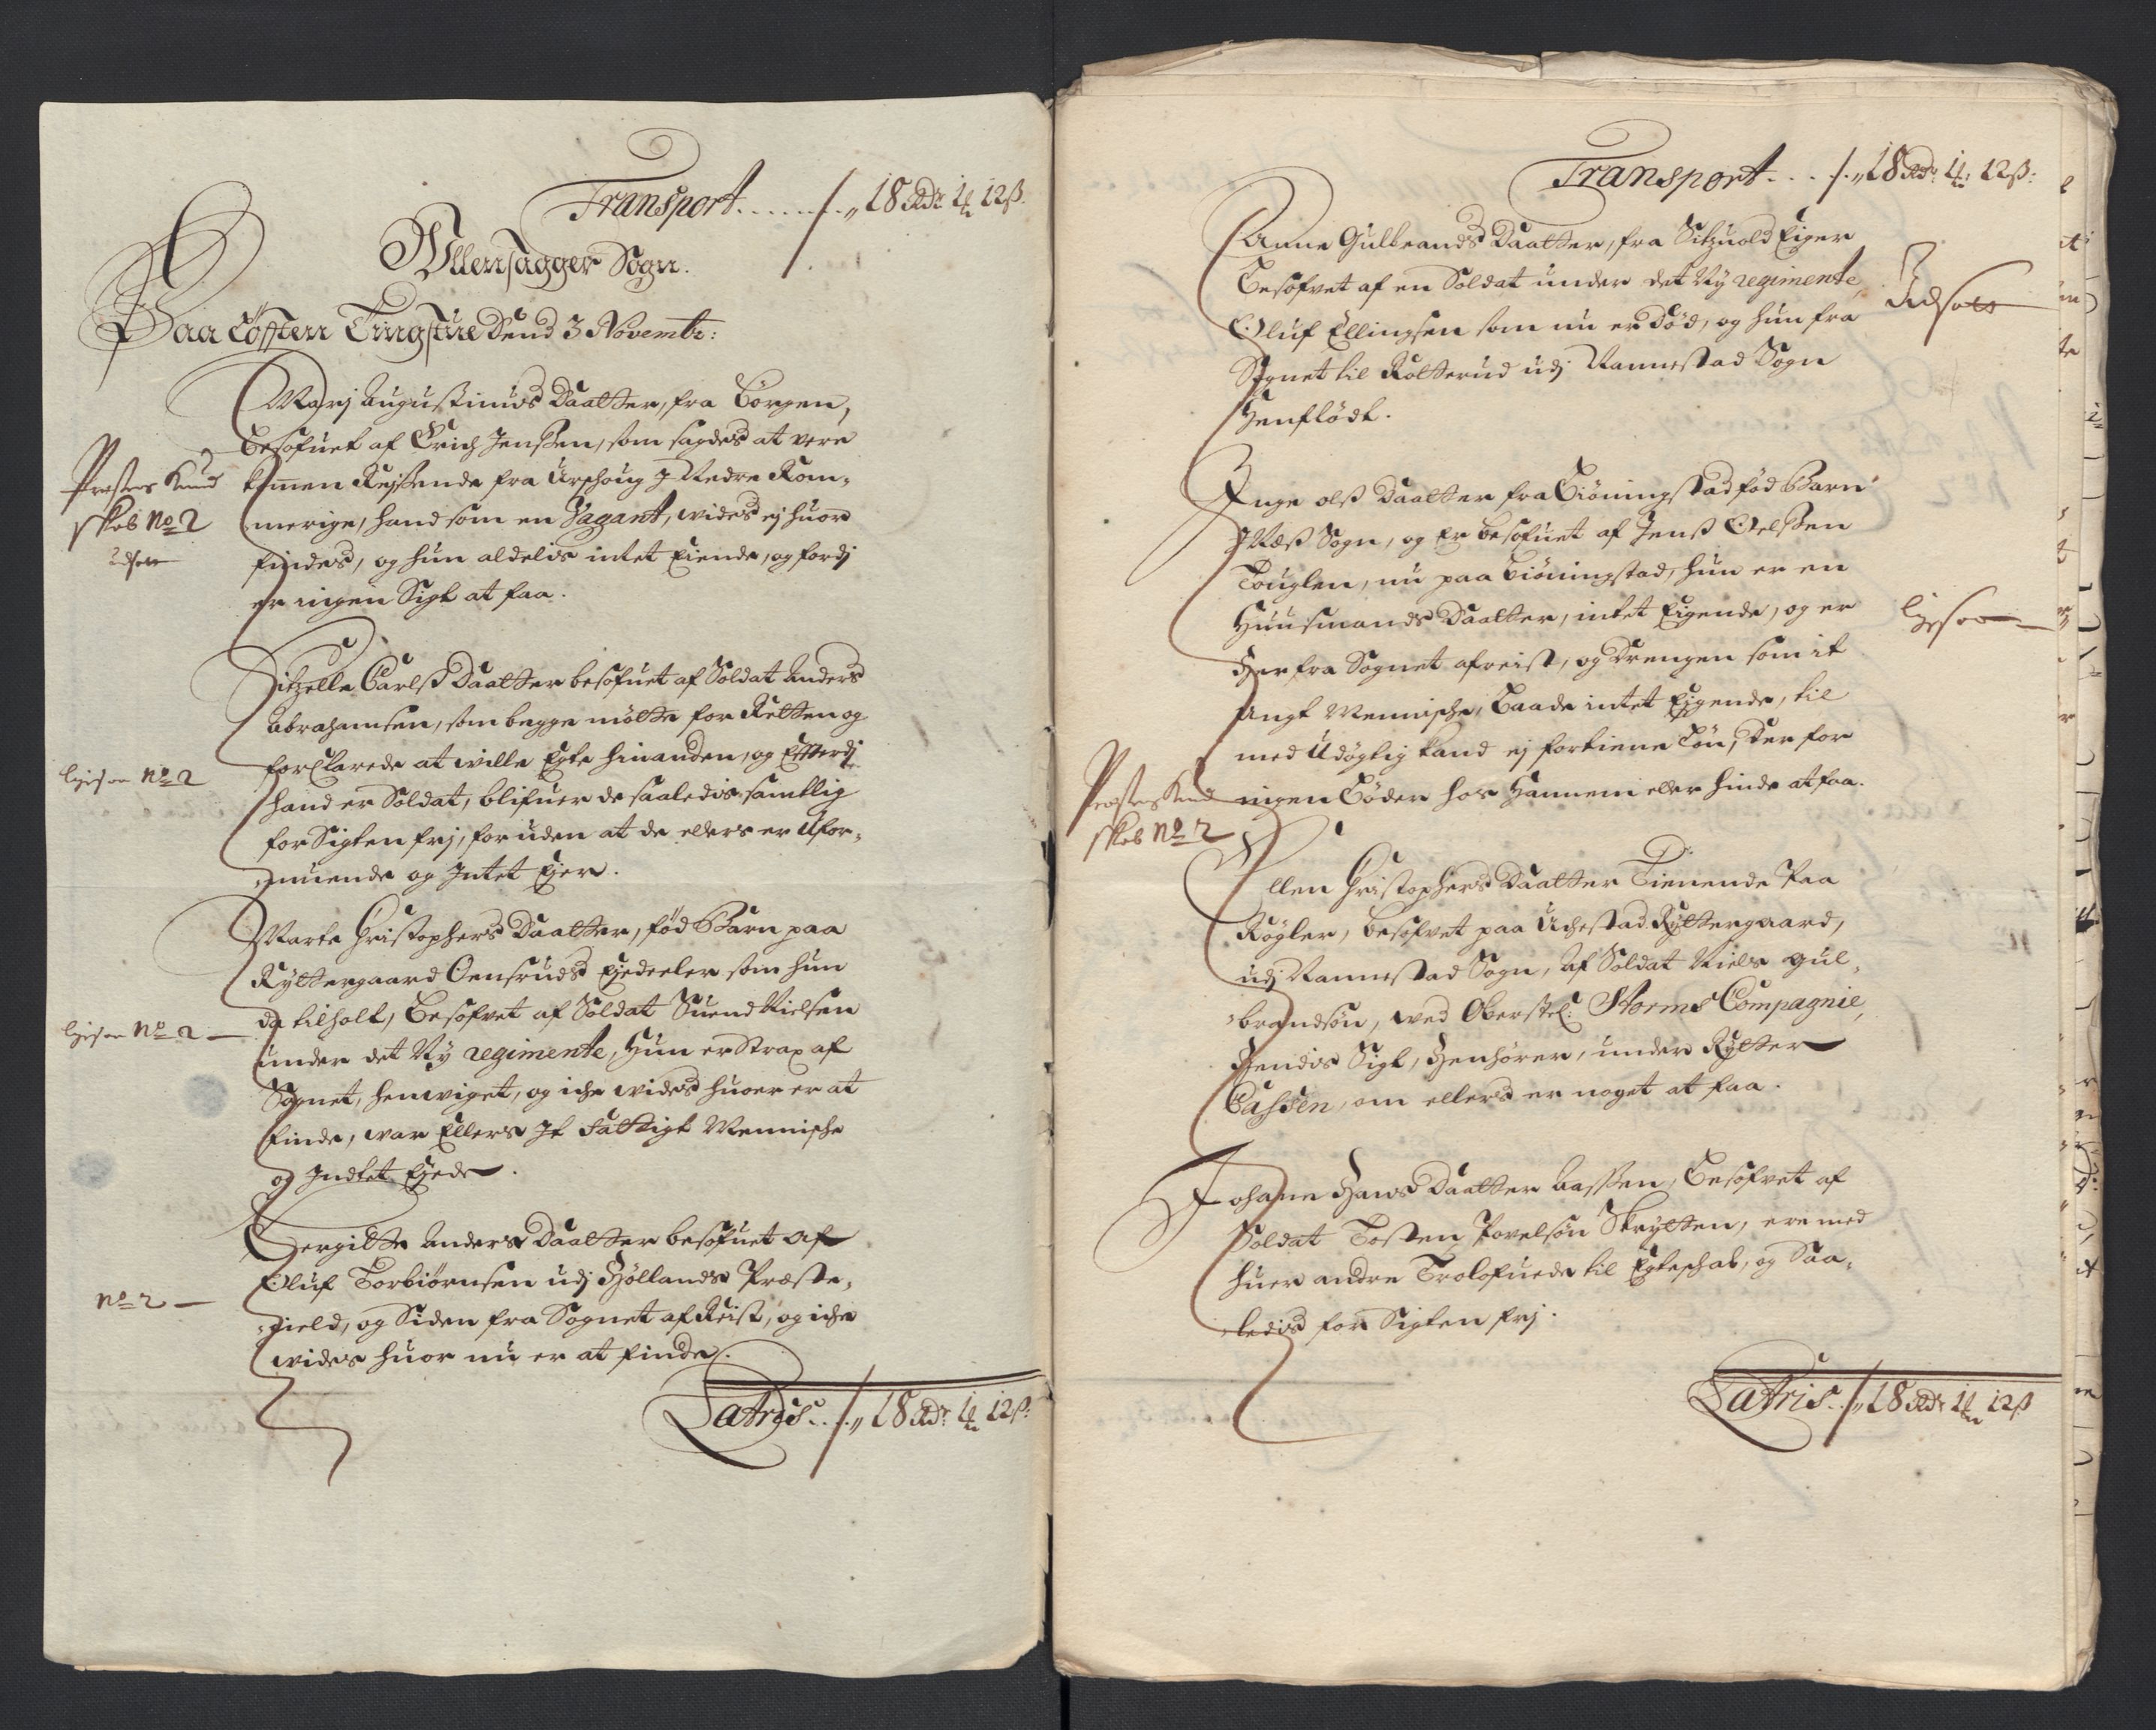 Transport ...... /. „ 18 Rdr 1 ℔ 12 ß.
Ullensagger Sogn.
Paa Løsten Tingstue Dend 3 Novembr:
Marj Augustinus Daatter, fra Borgen,
besofuet af Erich Jenssen, som sagdes at vere
kommen Rejsende fra Urshoug J Nedre Rom-
merige, hand som en Vagant, wides ej huor
findes, og hun aldelis intet Eiende, og fordj
er ingen Sigt at faa.
Præstens Kund
skab No 2
Sitzelle Carlsß Daatter besofuet af Soldat Anders
Abrahamsen, som begge mötte for Retten og
forklarede at wille Egte hinanden, og Efterdj
hand er Soldat, blifuer de saaledis samtlig
for Sigten frj, foruden at de ellers er Ufor-
muende og Intet Ejer.
ligesaa No 2
Marte Christophers Daatter, fød Barn paa
Ryttergaard Oensruds Ejedeeler som hun
da tilholt, Besofvet af Soldat Suend Nielsen
under det Ny regimente, Hun er Strax af
Sognet, henwiget, og iche wides huor er at
finde, war Ellers Jt Fattigt Menniske
og Indtet Ejede.
ligesaa No 2
Bergitte Anders Daatter besofuet af
Oluf Torbiörnsen udj Höllands Præste-
gield, og Siden fra Sognet afReist, og iche
wides huor nu er at finde.
No 2
Latris .. /. „ 18 Rdr 1 ℔ 12 ß:
Transport ... /. „ 18 Rdr 1 ℔ 12 ß:
Anne Gulbrands Daatter, fra Sitzuold Eiger
Besofvet af en Soldat under det Ny regimente,
Oluf Ellingsen som nu er Död, og hun fra
Sognet til Rotterud udj Nannestad Sogn
Henflödt.
Udsoets
Inge olsß Daatter fra Biöningstad fød Barn
J Næsß Sogn, og Er besofuet af Jensß Oelssen
Touglen, nu paa Biöningstad, hun er en
Huusmands Daatter, intet Eigende, og er
Her fra Sognet afreist, og Drengen som it
Ungt Menniske, Baade intet Ejgende, til
med Udögtig kand ej fortiene Lön, Der for
ingen Böder hos Hannem eller hinde at faa.
ligesaa
Præstens Kund
skab No 2
Ellen Christophers Daatter Tienende Paa
Rögler, besofvet paa Achestad Ryttergaard,
udj Nannestad Sogn, Af Soldat Niels gul-
brandsön, wed Oberstel: Storms Compagnie,
Hendis Sigt, Henhörer, under Rytter
Cassen, om ellers er noget at faa.
Johane Hans Daatter Aassen, Besofvet af
Soldat Tosten Povelsön Skrytten, ere med
huer andre Trolofuede til Egteschab, og Saa-
ledis for Sigten frj.
Latris. /. „ 18 Rdr 1 ℔ 12 ß